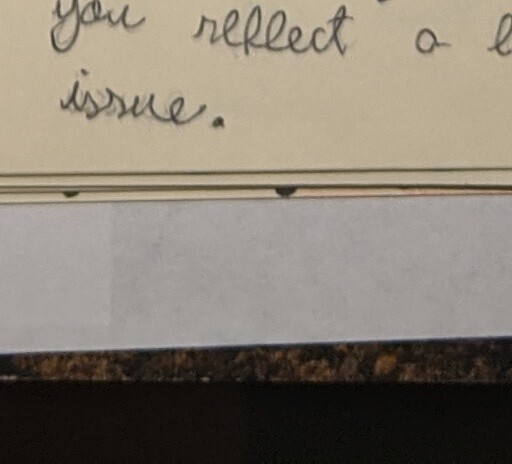 you reflect a
issue.